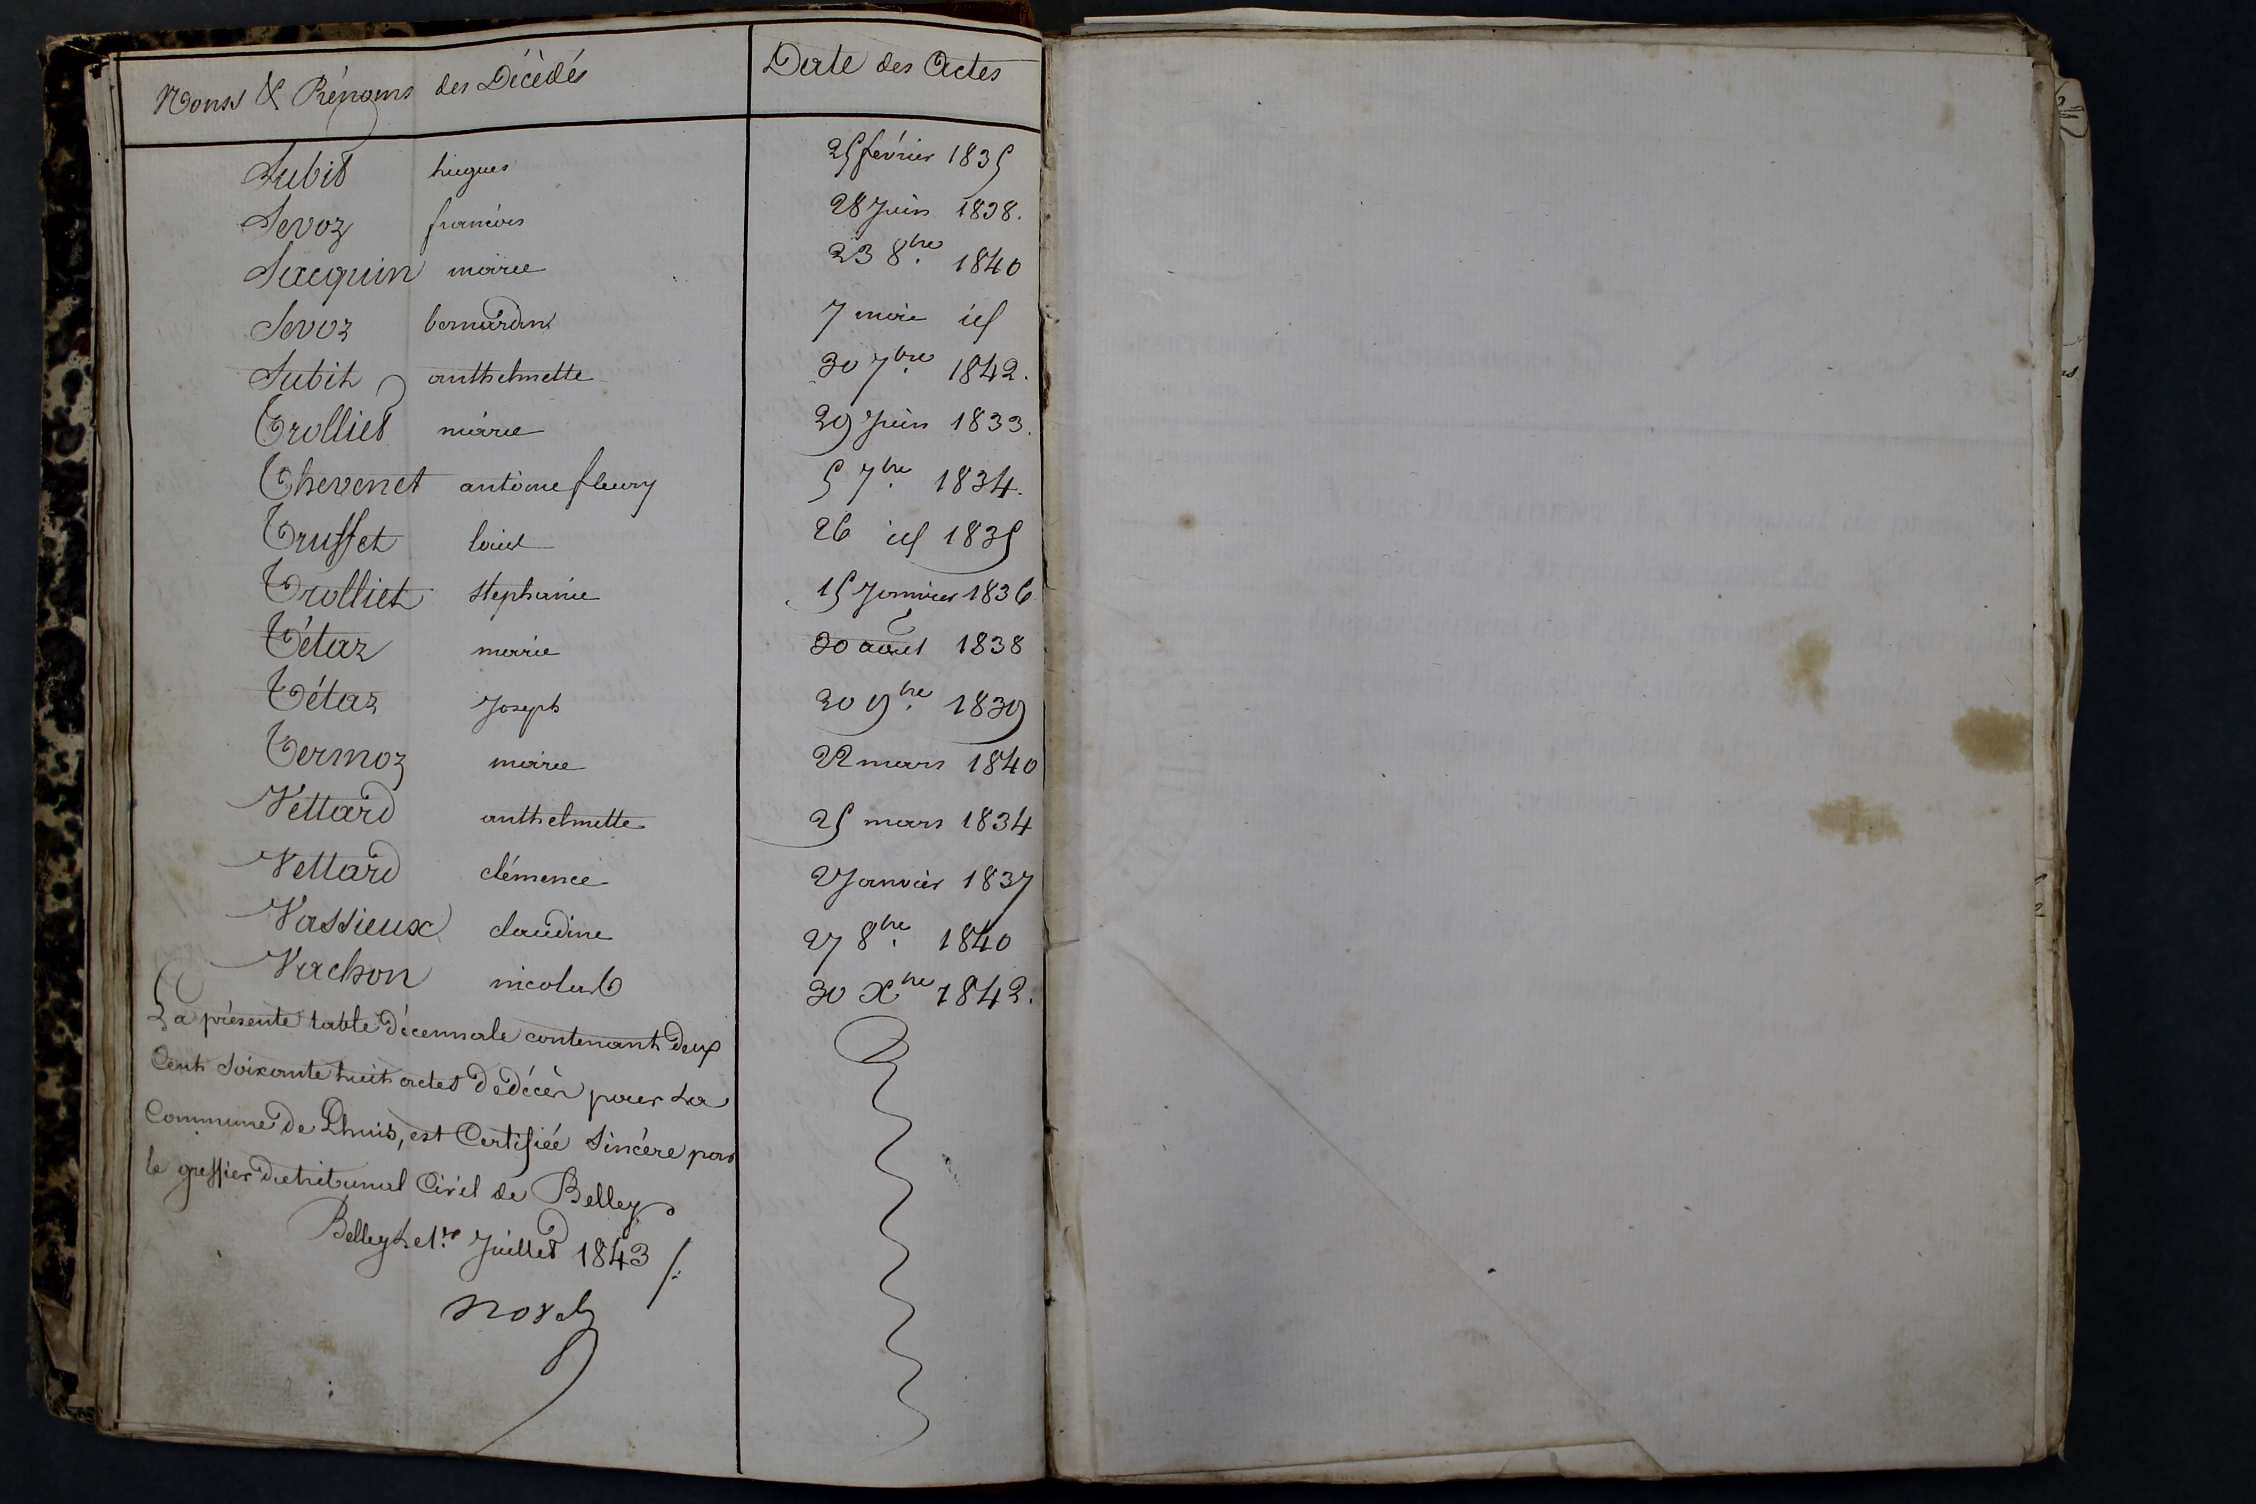 Noms & Prénoms des Décédés Date des Actes
Subit hugues 25 février 1835
Sevoz francois 28 Juin 1838.
Sacquin marie 23 8bre 1840
Sevoz bernardin 7 mai id
Subit anthelmette 30 7bre 1842.
Trolliet marie 29 Juin 1833.
Thevenet antoine fleury 5 7bre 1834.
Truffet louis 26 id 1835
Trolliet stephanie 15 Janvier 1836
Tétaz marie 30 aout 1838
Tétaz Joseph 20 9bre 1839
Termoz marie 22 mars 1840
Vettard anthelmette 25 mars 1834
Vettard clémence 2 Janvier 1837
Vassieux claudine 27 8bre 1840
Vachon nicolas 30 Xbre 1842.
La présente table décennale contenant deux
Cent Soixante huit actes de décès pour La
Commune de Lhuis, est Certifiée Sincère par
le greffier du tribunal Civil de Belley
Belley Le 1er Juillet 1843 /.